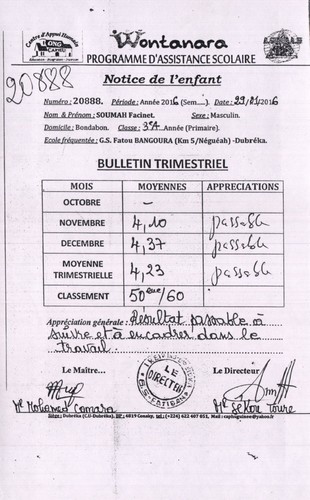 Centre d'Appel Humain
ONG
CAPHUI
Wontanara
PROGRAMME D'ASSISTANCE SCOLAIRE
20888
Notice de l'enfant
Numéro : 20888. Période : Année 2016 (Sem.....). Date : 29/01/2016
Nom & Prénom : SOUMAH Facinet. Sexe : Masculin.
Domicile : Bondabon. Classe : 3e A Année (Primaire).
Ecole fréquentée : G.S. Fatou BANGOURA (Km 5/Néguéah) -Dubréka.
BULLETIN TRIMESTRIEL
MOIS MOYENNES APPRECIATIONS
OCTOBRE –
NOVEMBRE 4,10 passable
DECEMBRE 4,37 passable
MOYENNE TRIMESTRIELLE 4,23 passable
CLASSEMENT 50ème/60
Appréciation générale : Résultat passable à
suivre et à encadrer dans le
travail.
Le Maître... Le Directeur
LE
DIRECTEUR
Mr Mohamed Camara Mr Sekou Toure
Siège : Dubréka (C.U-Dubréka), BP : 4019 Conakry, Tel : (+224) 622 407 051, Mail :